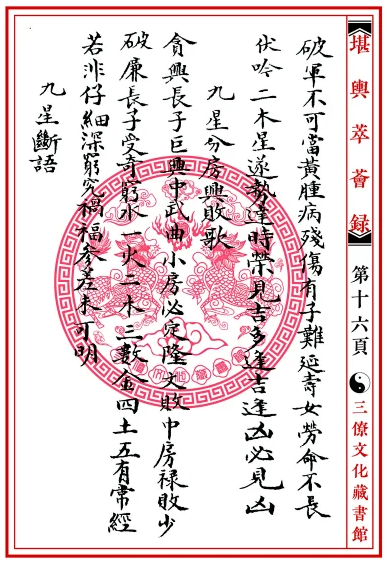 堪輿萃薈录
第十六頁
三僚文化藏書館
破軍不可當黃腫病殘傷有子難延壽女勞命不長
伏吟二木星遂勢達時榮見吉多逢吉逢凶必見凶
九星分房興敗歌
貪興長子巨興中武曲小房必定隆文敗中房禄敗少
破廉長子受奇窮水一火二木三數金四土五有常經
若非仔細深窮究禍福參差未可明
九星斷語